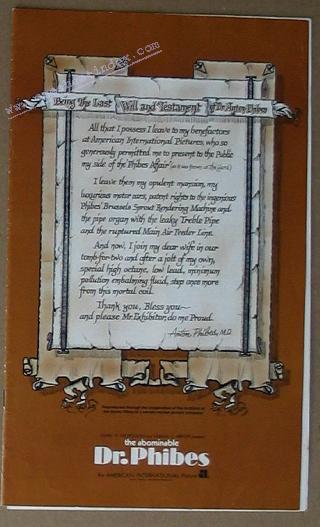 Being The Last Will and Testament of Dr. Anton Phibes
All that I possess I leave to my benefactors
at American International Pictures, who so
generously permitted me to present to the Public
my side of the Phibes Affair
I leave them my opulent mansion, my
luxurious motor cars, patent rights to the ingenious
Phibes' Brussels Sprout Rendering Machine and
the pipe organ with the leaky Treble Pipe
and the ruptured Main Air Feeder Line.
And now, I join my dear wife in our
tomb-for-two and after a jolt of my own,
special high octane, low lead, minimum
pollution embalming fluid, step once more
from this mortal coil.
Thank you, Bless you~
and please Mr. Exhibitor; do me Proud.
Anton Phibes, M.D.
the abominable
Dr. Phibes
An AMERICAN INTERNATIONAL Picture